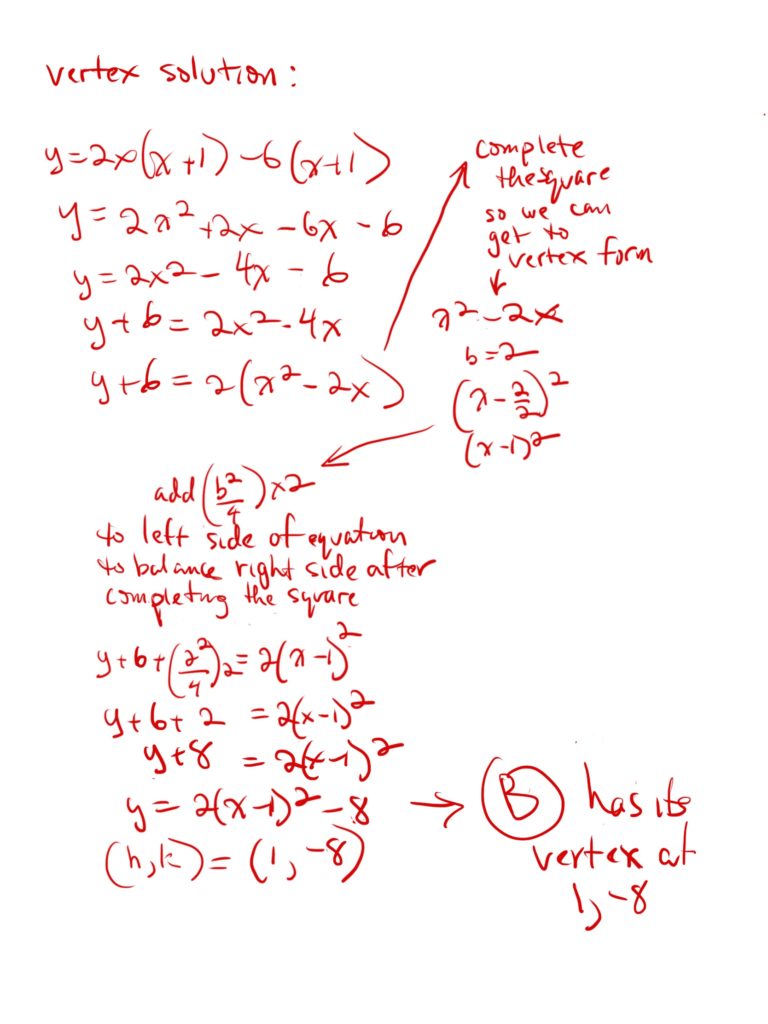 vertex solution:
y=2x(x+1)-6(x+1)
y=2x²+2x-6x-6
y=2x²-4x-6
y+6=2x²-4x
y+6=2(x²-2x)
complete
the square
so we can
get to
vertex form
x²-2x
b=2
(x-2/2)²
(x-1)²
add (b²/4)x2
to left side of equation
to balance right side after
completing the square
y+6+(2²/4)2=2(x-1)²
y+6+2=2(x-1)²
y+8=2(x-1)²
y=2(x-1)²-8 → B has its
(h,k)=(1,-8)
vertex at
1,-8